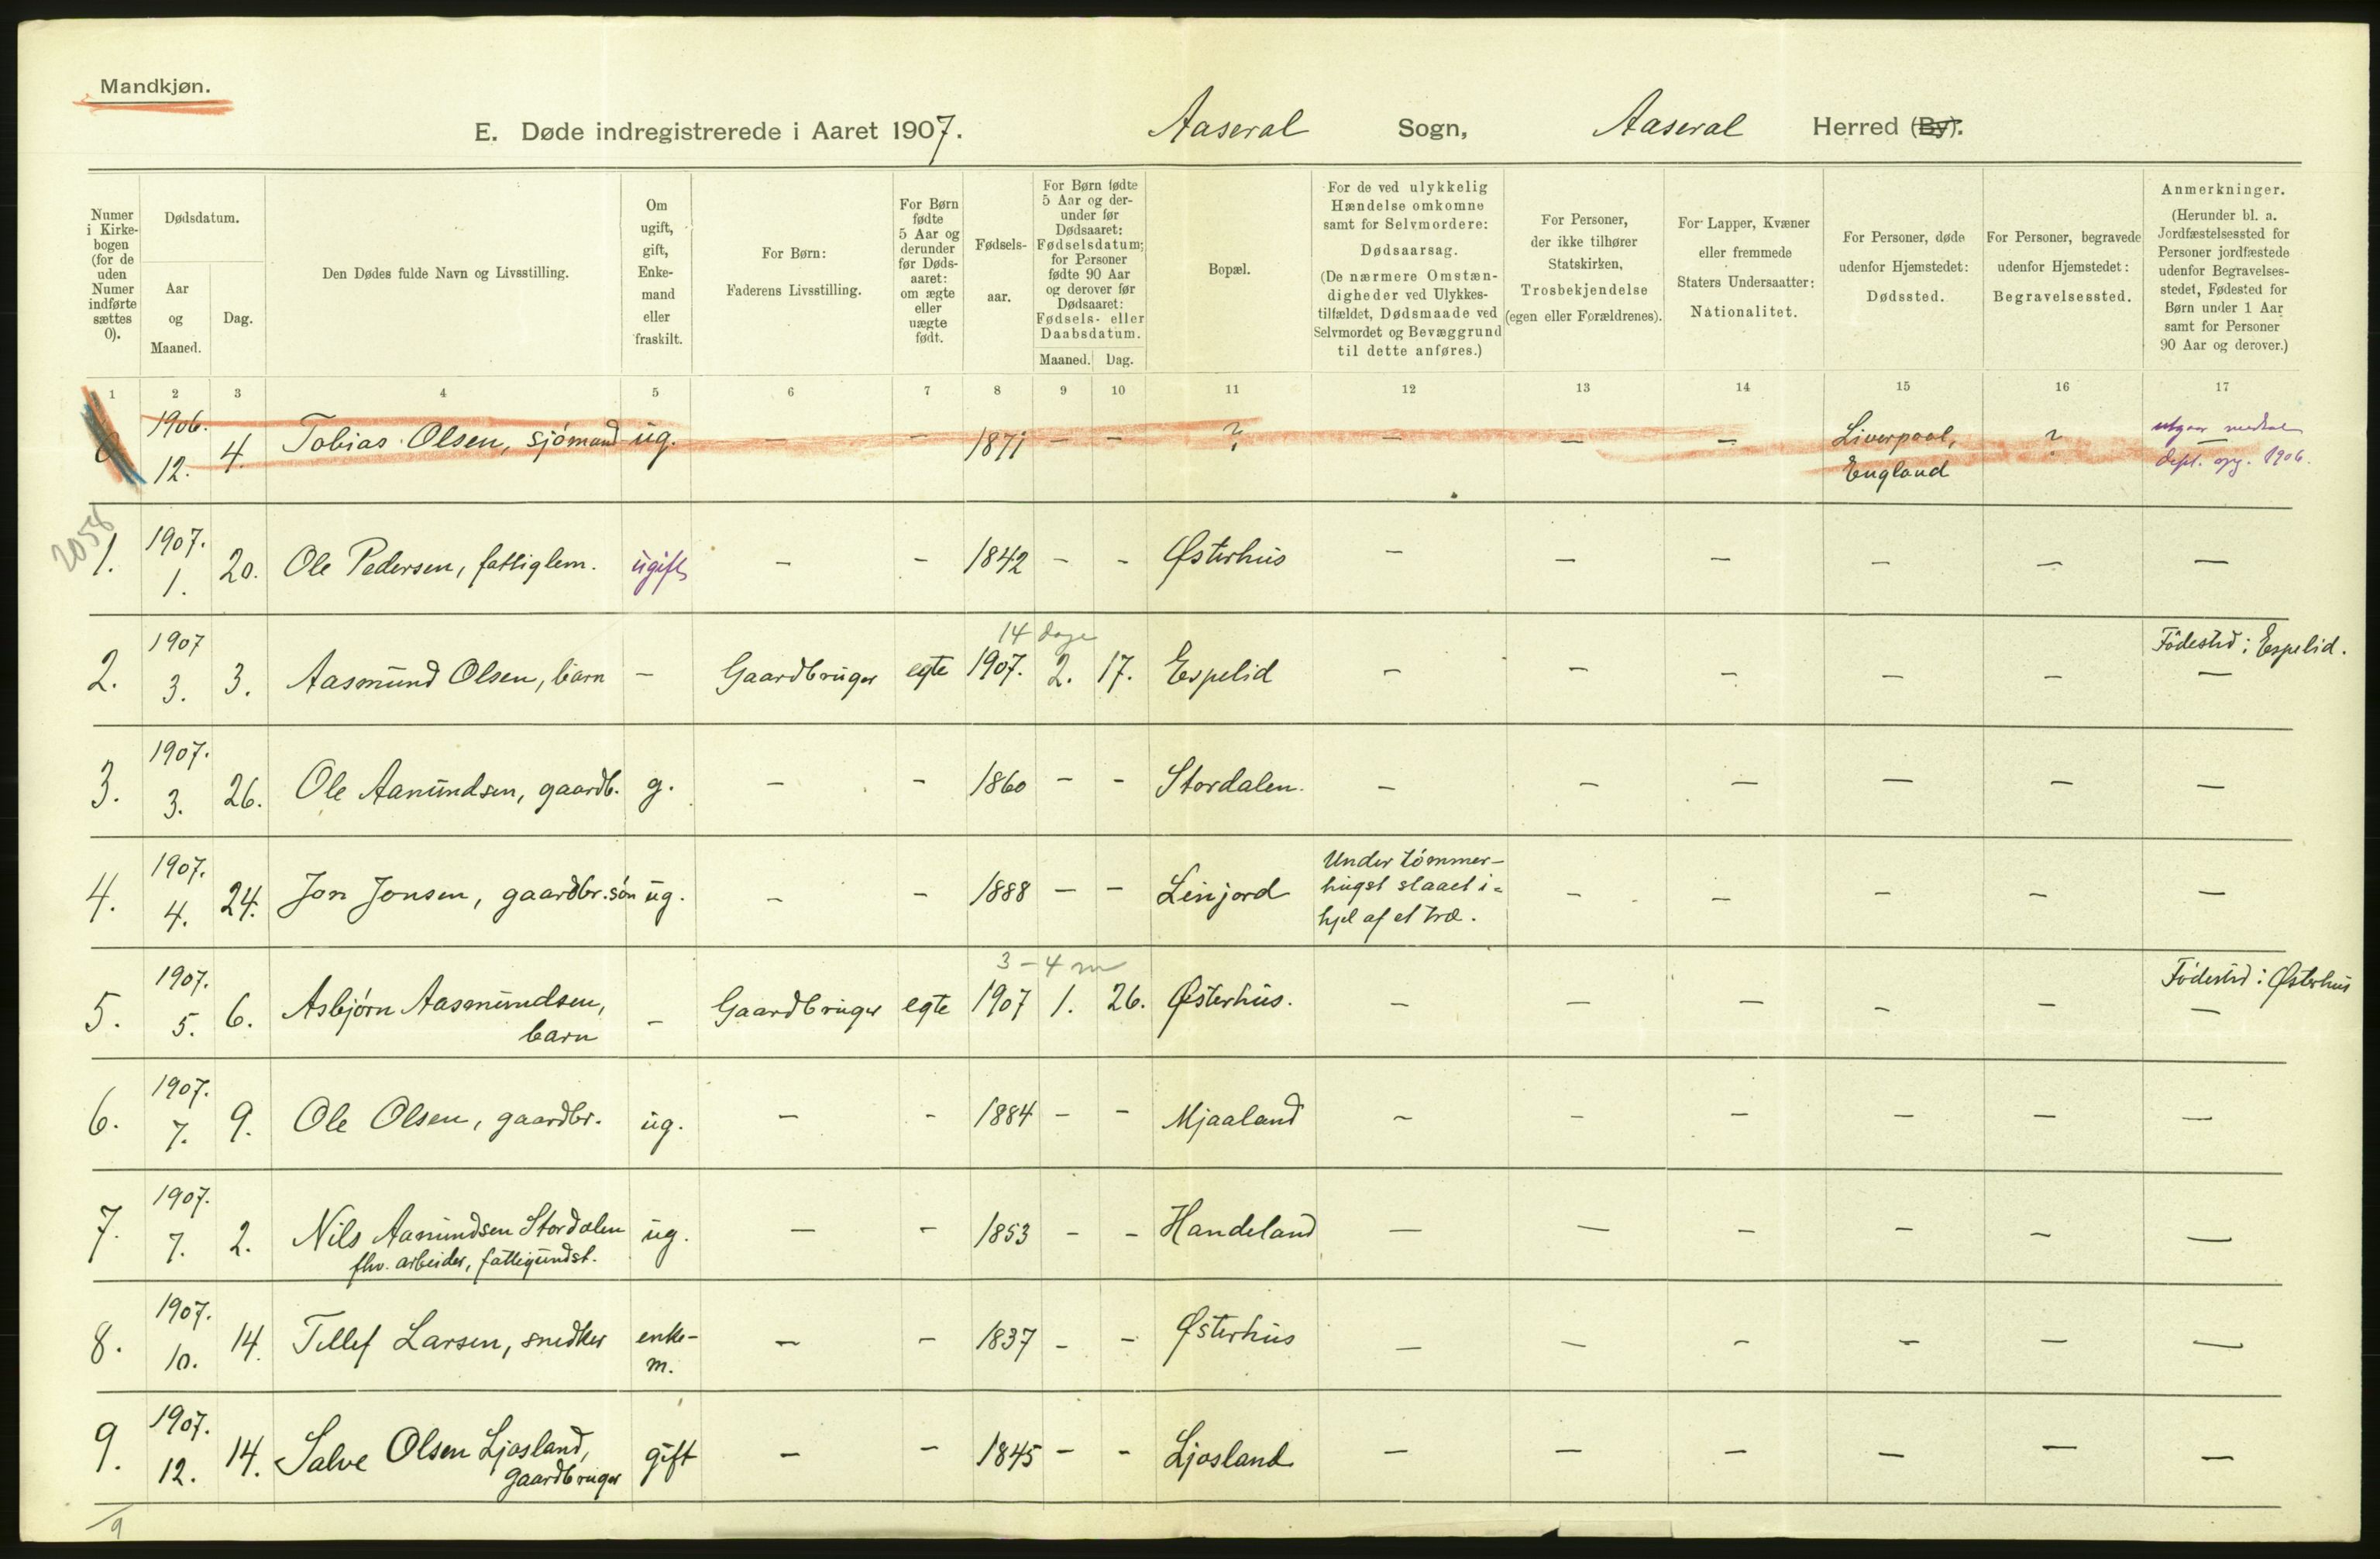 Mandkjøn.
E. Døde indregistrerede i Aaret 1907. Aaseral Sogn, Aaseral Herred (By).
Numer i Kirke-bogen (for de uden Numer indførte sættes 0).
Dødsdatum.
Aar og Maaned.
Dag.
Den Dødes fulde Navn og Livsstilling.
Om ugift, gift, Enke-mand eller fraskilt.
For Børn: Faderens Livsstilling.
For Børn fødte 5 Aar og derunder før Døds-aaret: om ægte eller uægte født.
Fødsels-aar.
For Børn fødte 5 Aar og der-under før Dødsaaret: Fødselsdatum; for Personer fødte 90 Aar og derover før Dødsaaret: Fødsels- eller Daabsdatum.
Maaned. Dag.
Bopæl.
For de ved ulykkelig Hændelse omkomne samt for Selvmordere: Dødsaarsag. (De nærmere Omstæn-digheder ved Ulykkes-tilfældet, Dødsmaade ved Selvmordet og Bevæggrund til dette anføres.)
For Personer, der ikke tilhører Statskirken, Trosbekjendelse (egen eller Forældrenes).
For Lapper, Kvæner eller fremmede Staters Undersaatter: Nationalitet.
For Personer, døde udenfor Hjemstedet: Dødssted.
For Personer, begravede udenfor Hjemstedet: Begravelsessted.
Anmerkninger. (Herunder bl. a. Jordfæstelsessted for Personer jordfæstede udenfor Begravelses-stedet, Fødested for Børn under 1 Aar samt for Personer 90 Aar og derover.)
1 2 3 4 5 6 7 8 9 10 11 12 13 14 15 16 17
0 1906. 12. 4. Tobias Olsen, sjömand ug. – – 1871 – – ? – – – Liverpool, England ? –
dept. opg. 1906.
2058
1. 1907. 1. 20. Ole Pedersen, fattiglem. ugift – – 1842 – – Østerhus – – – – – –
14 dage
2. 1907 3. 3. Aasmund Olsen, barn – Gaardbruger egte 1907. 2. 17. Espelid – – – – – Födested: Espelid. –
3. 1907. 3. 26. Ole Aanundsen, gaardb. g. – – 1860 – – Stordalen. – – – – – –
4. 1907. 4. 24. Jon Jonsen, gaardbr.sön ug. – – 1888 – – Linjord Under tömmer-hugst slaaet i=hjel af et træ. – – – – –
3–4 m
5. 1907. 5. 6. Asbjörn Aasmundsen, barn – Gaardbruger egte 1907 1. 26. Østerhus. – – – – – Födested: Østerhus –
6. 1907. 7. 9. Ole Olsen, gaardbr. ug. – – 1884 – – Mjaaland – – – – – –
7. 1907. 7. 2. Nils Aanundsen Stordalen flv. arbeider, fattigundst. ug. – – 1853 – – Handeland – – – – – –
8. 1907. 10. 14. Tellef Larsen, snedker enke-m. – – 1837 – – Østerhus – – – – – –
9. 1907. 12. 14. Salve Olsen Ljosland, gaardbruger gift – – 1845 – – Ljosland – – – – – –
9